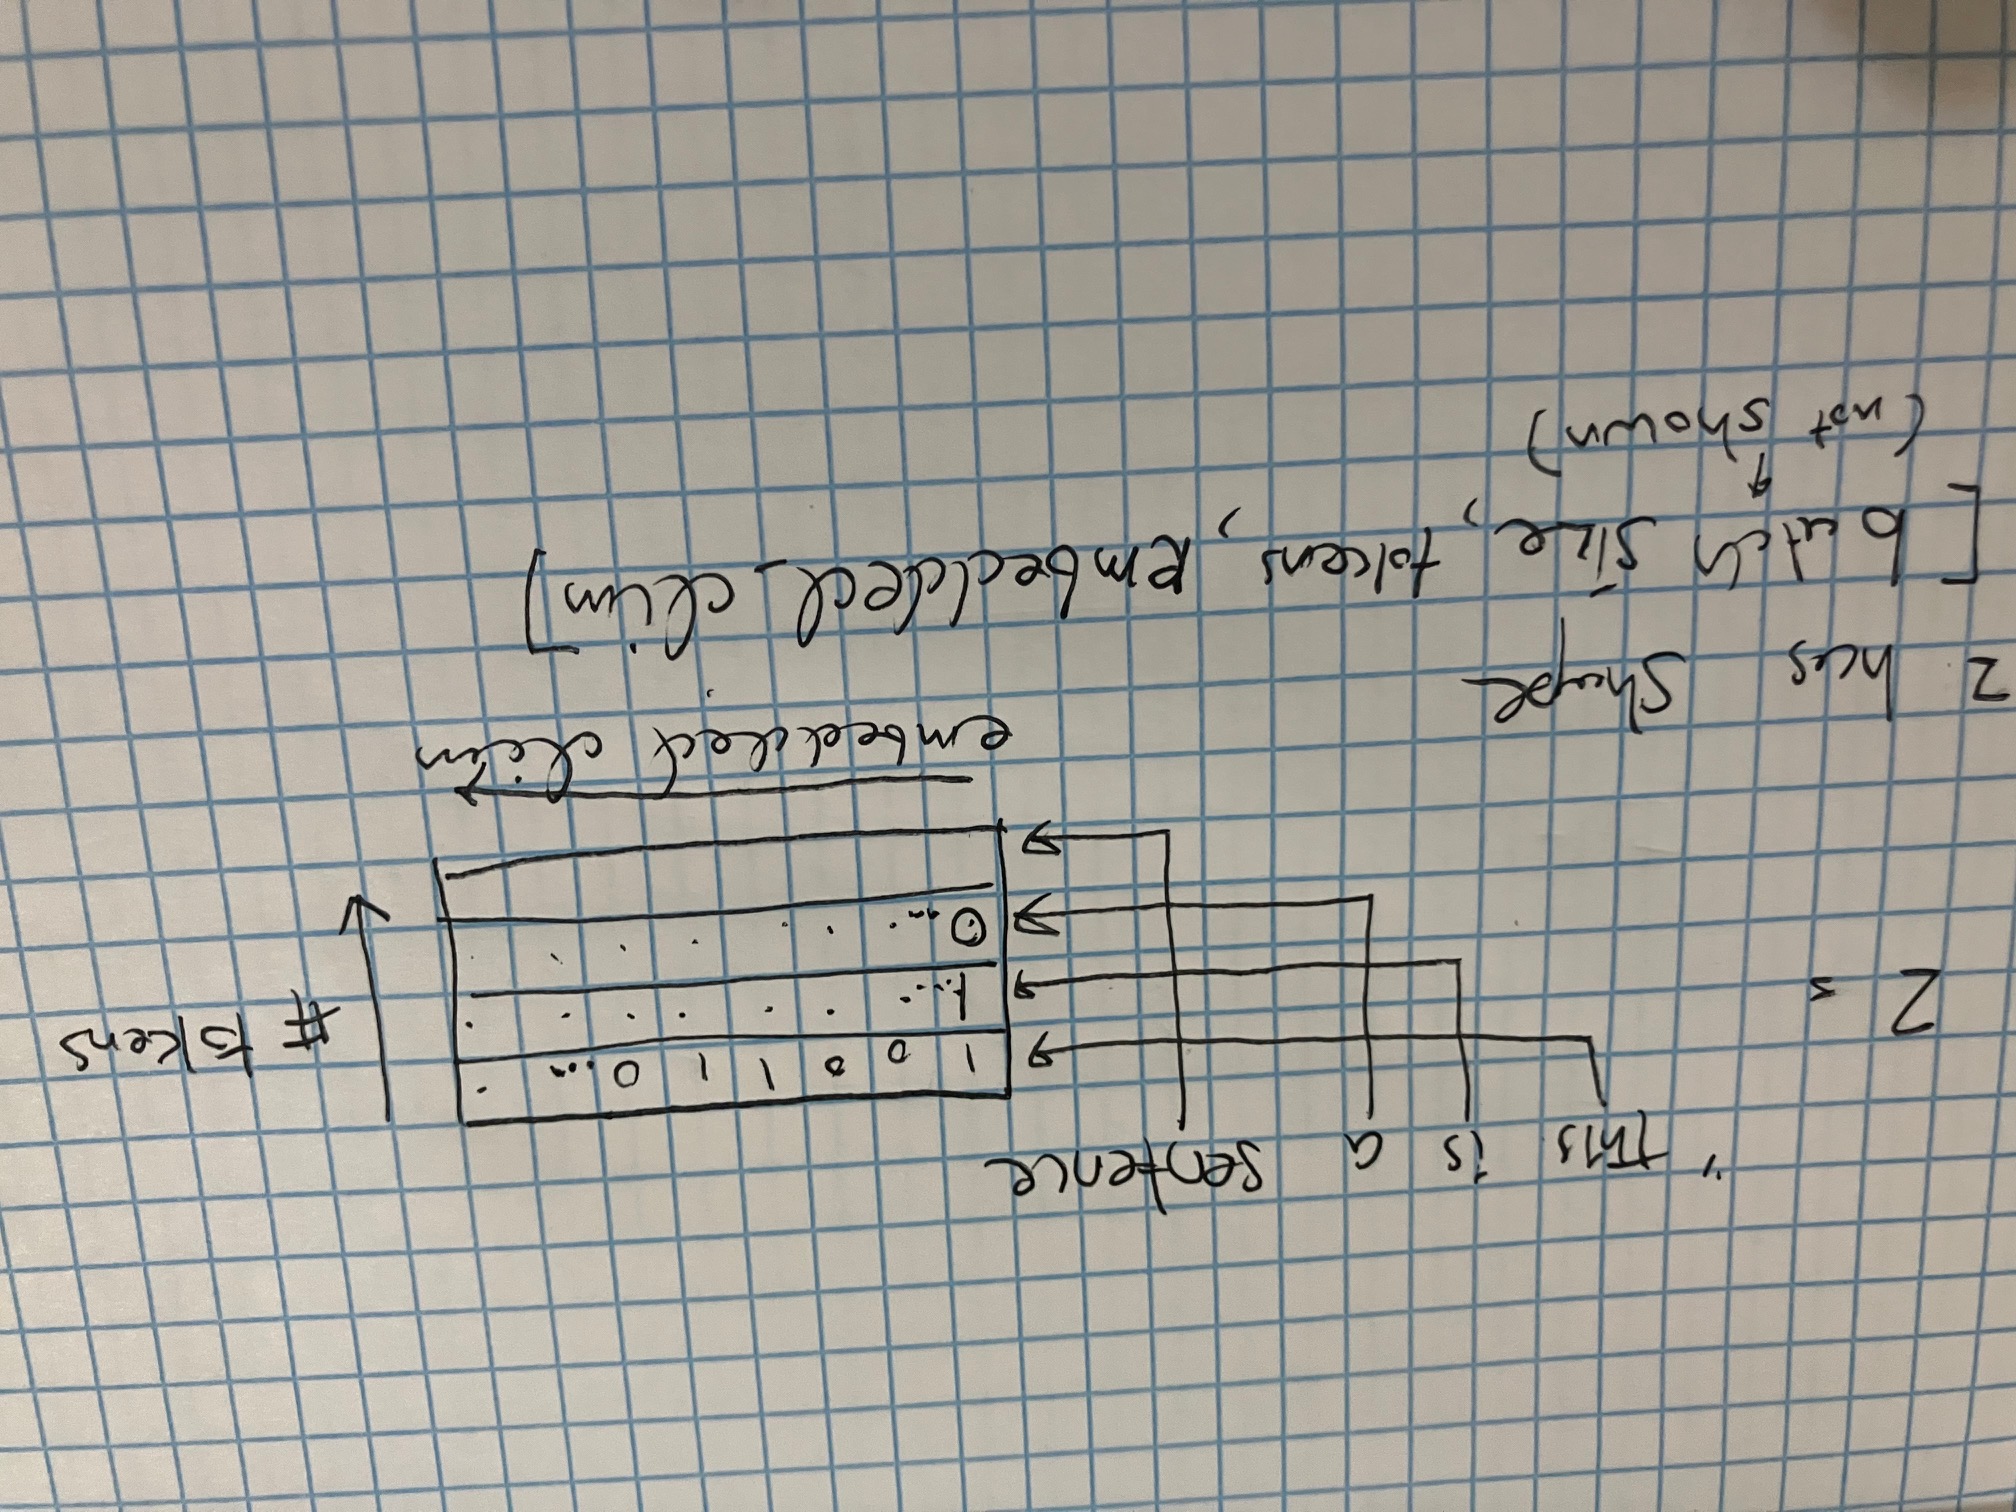 " This is a sentence
Z =
1 0 0 1 1 0 ...
1 ...
0 ...
# tokens
embedded dim
Z has shape
[batch size, tokens, embedded_dim]
(not shown)